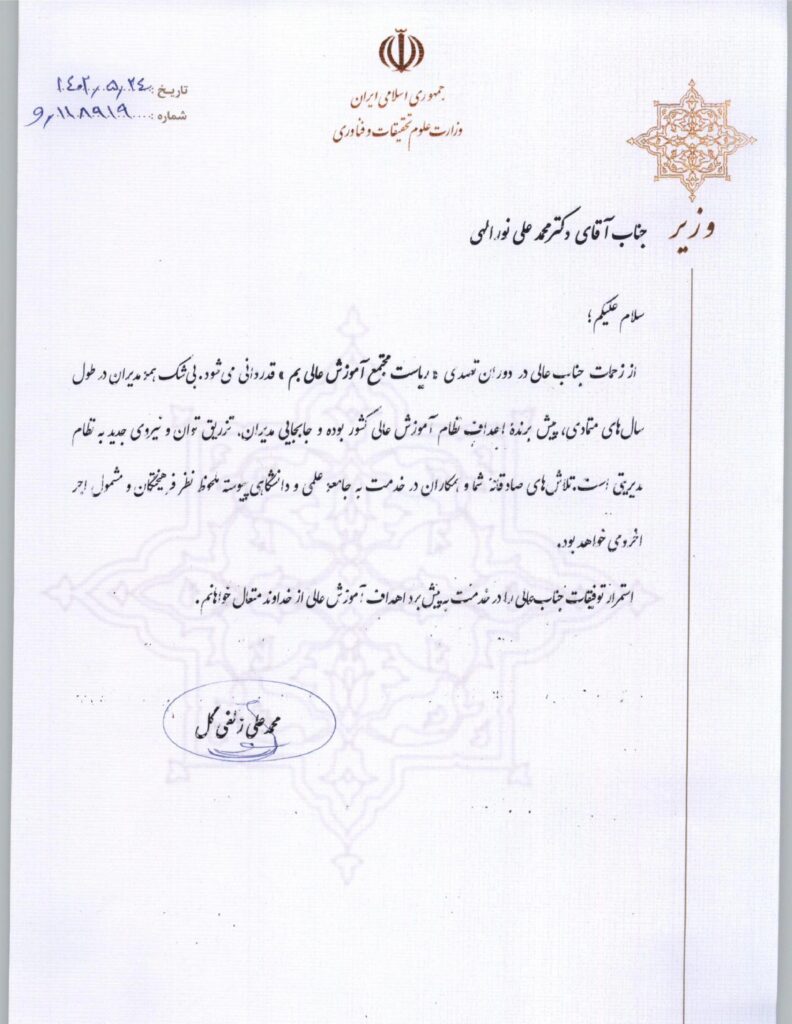 جمهوری اسلامی ایران
وزارت علوم تحقیقات و فناوری
تاریخ: ۱۴۰۲/۵/۲۴
شماره: ۱۱۸۹۱۹/و
وزیر
جناب آقای دکتر محمد علی نورالهی
سلام علیکم؛
از زحمات جناب عالی در دوران تصدی «ریاست مجتمع آموزش عالی بم» قدردانی می‌شود. بی‌شک همۀ مدیران در طول
سال‌های متمادی، پیش برندۀ اهداف نظام آموزش عالی کشور بوده و جابجایی مدیران، تزریق توان و نیروی جدید به نظام
مدیریتی است. تلاش‌های صادقانۀ شما و همکاران در خدمت به جامعۀ علمی و دانشگاهی پیوسته ملحوظ نظر فرهیختگان و مشمول اجر
اخروی خواهد بود.
استمرار توفیقات جناب‌عالی را در خدمت به پیش برد اهداف آموزش عالی از خداوند متعال خواهانم.
محمد علی زلفی گل